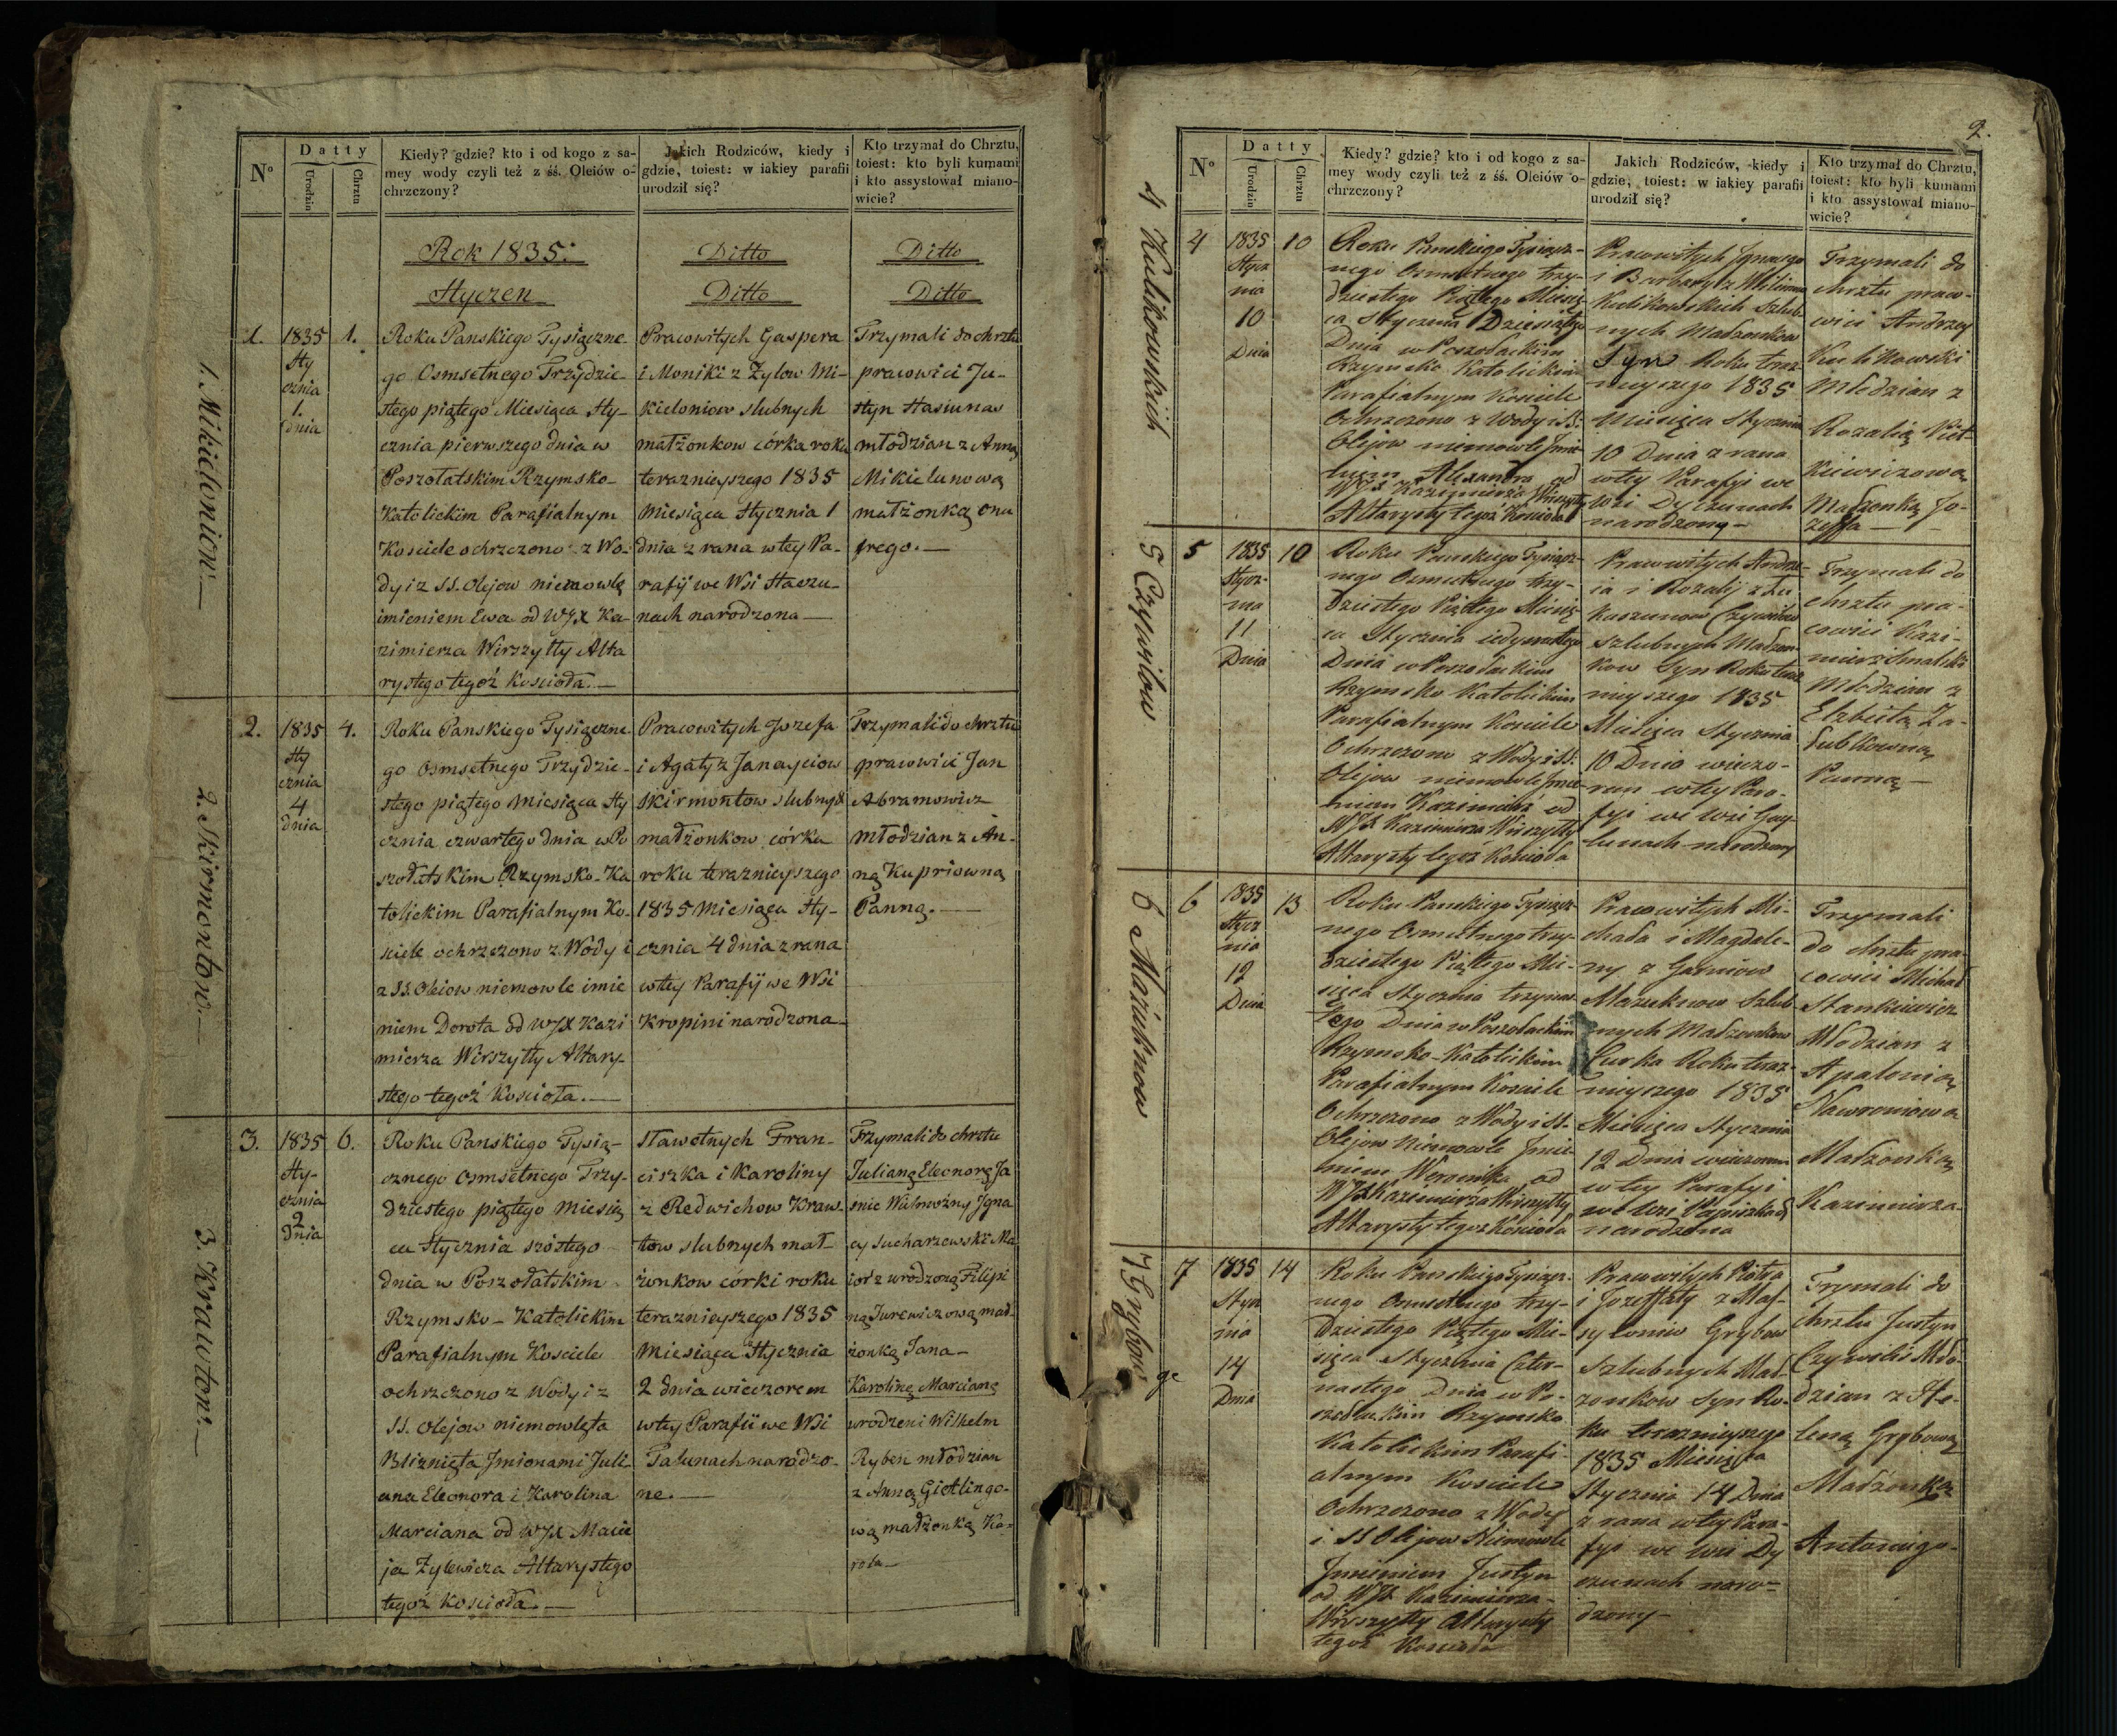 N°
Datty
Urodzin
Chrztu
Kiedy? gdzie? kto i od kogo z sa-
mey wody czyli też z śś. Oleiów o-
chrzczony?
Jakich Rodziców, kiedy i
gdzie, toiest: w iakiey parafii
urodził się?
Kto trzymał do Chrztu,
toiest: kto byli kumami
i kto assystował miano-
wicie?
Rok 1835.
Ditto
Ditto
Styczen
Ditto
Ditto
1. Mikielonion.
1.
1835
Sty
cznia
1.
dnia
1.
Roku Panskiego Tysiączne-
go Osmsetnego Trzydzie-
stego piątego Miesiąca Sty-
cznia pierwszego dnia w
Poszołatskim Rzymsko-
Katolickim Parafialnym
Kosciele ochrzczono z Wo-
dy i z SS. Olejow niemowlę
imieniem Ewa od WJX Ka-
zimierza Wirszyłły Alta
rystego tegoż Kościoła.
Pracowitych Gaspera
i Moniki z Zylow Mi-
kielonion slubnych
małżonkow córka roku
teraznieyszego 1835
Miesiąca Stycznia 1
dnia z rana w tey Pa-
rafij we Wsi Staczu-
nach narodzona
Trzymali do chrztu
pracowici Ju-
styn Stasiunas
młodzian z Anną
Mikielunową
małżonką Onu
frego.
2. Skirmontow.
2.
1835
Sty
cznia
4
dnia
4.
Roku Panskiego Tysiączne-
go Osmsetnego Trzydzie-
stego piątego Miesiąca Sty
cznia czwartego dnia w Po
szołatskim Rzymsko-Ka
tolickim Parafialnym Ko-
sciele ochrzczono z Wody i
z SS. Oleiow niemowle imie
niem Dorota od WJX Kazi
mierza Wirszyłły Altary-
stego tegoż Kościoła.
Pracowitych Jozefa
i Agaty z Janayciow
Skirmontow slubnych
małżonkow córka
roku teraznieyszego
1835 Miesiąca Sty-
cznia 4 dnia z rana
w tey Parafij we Wsi
Kropini narodzona
Trzymali do chrztu
pracowici Jan
Abramowicz
młodzian z An-
ną Kupriowną
Panną.
3. Krawton.
3.
1835
Sty-
cznia
2
dnia
6.
Roku Panskiego Tysią-
cznego Osmsetnego Trzy-
dziestego piątego Miesią
ca Stycznia szóstego
dnia w Poszołatskim
Rzymsko-Katolickim
Parafialnym Kosciele
ochrzczono z Wody i z
SS. Olejow niemowlęta
Bliznięta Jmionami Juli
ana Eleonora i Karolina
Marciana od WJX Macie
ja Zylewicza Altarystego
tegoż Kościoła.
Sławetnych Fran-
ciszka i Karoliny
z Redwichow Kraw-
tow slubnych mał-
żonkow córki roku
teraznieyszego 1835
Miesiąca Stycznia
2 dnia wieczorem
w tey Parafii we Wsi
Gałunach narodzo-
ne.
Trzymali do chrztu
Julianę Eleonorę Ja
śnie Wielmożny Jgna
cy Sucharzewski Ma
ior z urodzoną Filipi
ną Jurewiczową mał-
żonką Jana
Karolinę Marcianę
urodzeni Wilhelm
Ryben młodzian
z Anną Gietlingo-
wą małżonką Ka-
rola
2.
N°
Datty
Urodzin
Chrztu
Kiedy? gdzie? kto i od kogo z sa-
mey wody czyli też z śś. Oleiów o-
chrzczony?
Jakich Rodziców, kiedy i
gdzie, toiest: w iakiey parafii
urodził się?
Kto trzymał do Chrztu,
toiest: kto byli kumami
i kto assystował miano-
wicie?
4 Kulikowskich
4
1835
Stycz
nia
10
Dnia
10
Roku Panskiego Tysiącz-
nego Osmsetnego trzy-
dziestego Piątego Miesią-
ca Stycznia Dziesiątego
Dnia w Poszołackim
Rzymsko Katolickim
Parafialnym Kosciele
Ochrzczono z Wody i SS:
Olejow niemowle Jmie-
niem Alexandra od
WJX Kazimierza Wirszyłły
Altarysty tegoż Kościoła
Pracowitych Jgnacego
i Barbary z
Kulikowskich Szlub-
nych Małżonkow
Syn Roku teraz-
nieyszego 1835
Miesięca Stycznia
10 Dnia z rana
w tey Parafyi we
wsi Dyczunach
narodzony
Trzymali do
chrztu praco-
wici Andrzey
Kulikowski
Młodzian z
Rozalią Piet-
kiewiczową
Małżonką Jo-
zeffa
5 Czywilow
5
1835
Stycz-
nia
11
Dnia
10
Roku Panskiego Tysiącz-
nego Osmsetnego trzy-
dziestego Piątego Miesią-
ca Stycznia iedynastego
Dnia w Poszołackim
Rzymsko Katolickim
Parafialnym Kosciele
Ochrzczono z Wody i SS:
Olejow niemowle Jmie-
niem Kazimierz od
WJX Kazimierza Wirszyłły
Altarysty tegoż Kościoła
Pracowitych Andrze-
ia i Rozalij z Łu
kaszunow Czywilow
Szlubnych Małżon-
kow Syn Roku teraz
nieyszego 1835
Miesięca Stycznia
10 Dnia wieczo-
rem w tey Para-
fyi we wsi Gay-
lunach narodzony
Trzymali do
chrztu pra-
cowici Kazi-
mierz Smalski
Młodzian z
Elzbietą Za-
Panną
6 Maziuknow
6
1835
Stycz
nia
12
Dnia
13
Roku Panskiego Tysiącz-
nego Osmsetnego trzy-
dziestego Piątego Mie-
sięca Stycznia trzynas-
tego Dnia w Poszołackim
Rzymsko-Katolickim
Parafialnym Kosciele
Ochrzczono z Wody i SS.
Olejow Niemowle Jmie-
niem Weronika od
WJX Kazimierza Wirszyłły
Altarysty tegoż Kościoła
Pracowitych Mi-
chała i Magdale-
ny z
Szlub-
nych Małżonkow
Curka Roku teraz-
nieyszego 1835
Miesięca Stycznia
12 Dnia wieczorem
w tey Parafyi
we wsi
narodzona
Trzymali
do chrztu pra-
cowici Michał
Stankiewicz
Młodzian z
Apalonią
Nawroniową
Małżonką
Kazimierza
7 Grybow
7
1835
Stycz
nia
14
Dnia
14
Roku Panskiego Tysiącz-
nego Osmsetnego trzy-
dziestego Piątego Mie-
sięca Stycznia Czter-
nastego Dnia w Po-
szołackim Rzymsko
Katolickim Parafi-
alnym Kosciele
Ochrzczono z Wody
i SS Olejow Niemowle
Jmieniem Justyn
od WJX Kazimierza
Wirszyłły Altarysty
tegoż Kościoła
Pracowitych Piotra
i Jozeffaty z Mas-
syloniow Grybow
Szlubnych Mał-
żonkow Syn Ro-
ku teraznieyszego
1835 Miesięca
Stycznia 14 Dnia
z rana w tey Para-
fyi we wsi Dy
czunach naro-
dzony
Trzymali do
chrztu Justyn
Młodzian z He-
leną Grybową
Małżonką
Antoniego